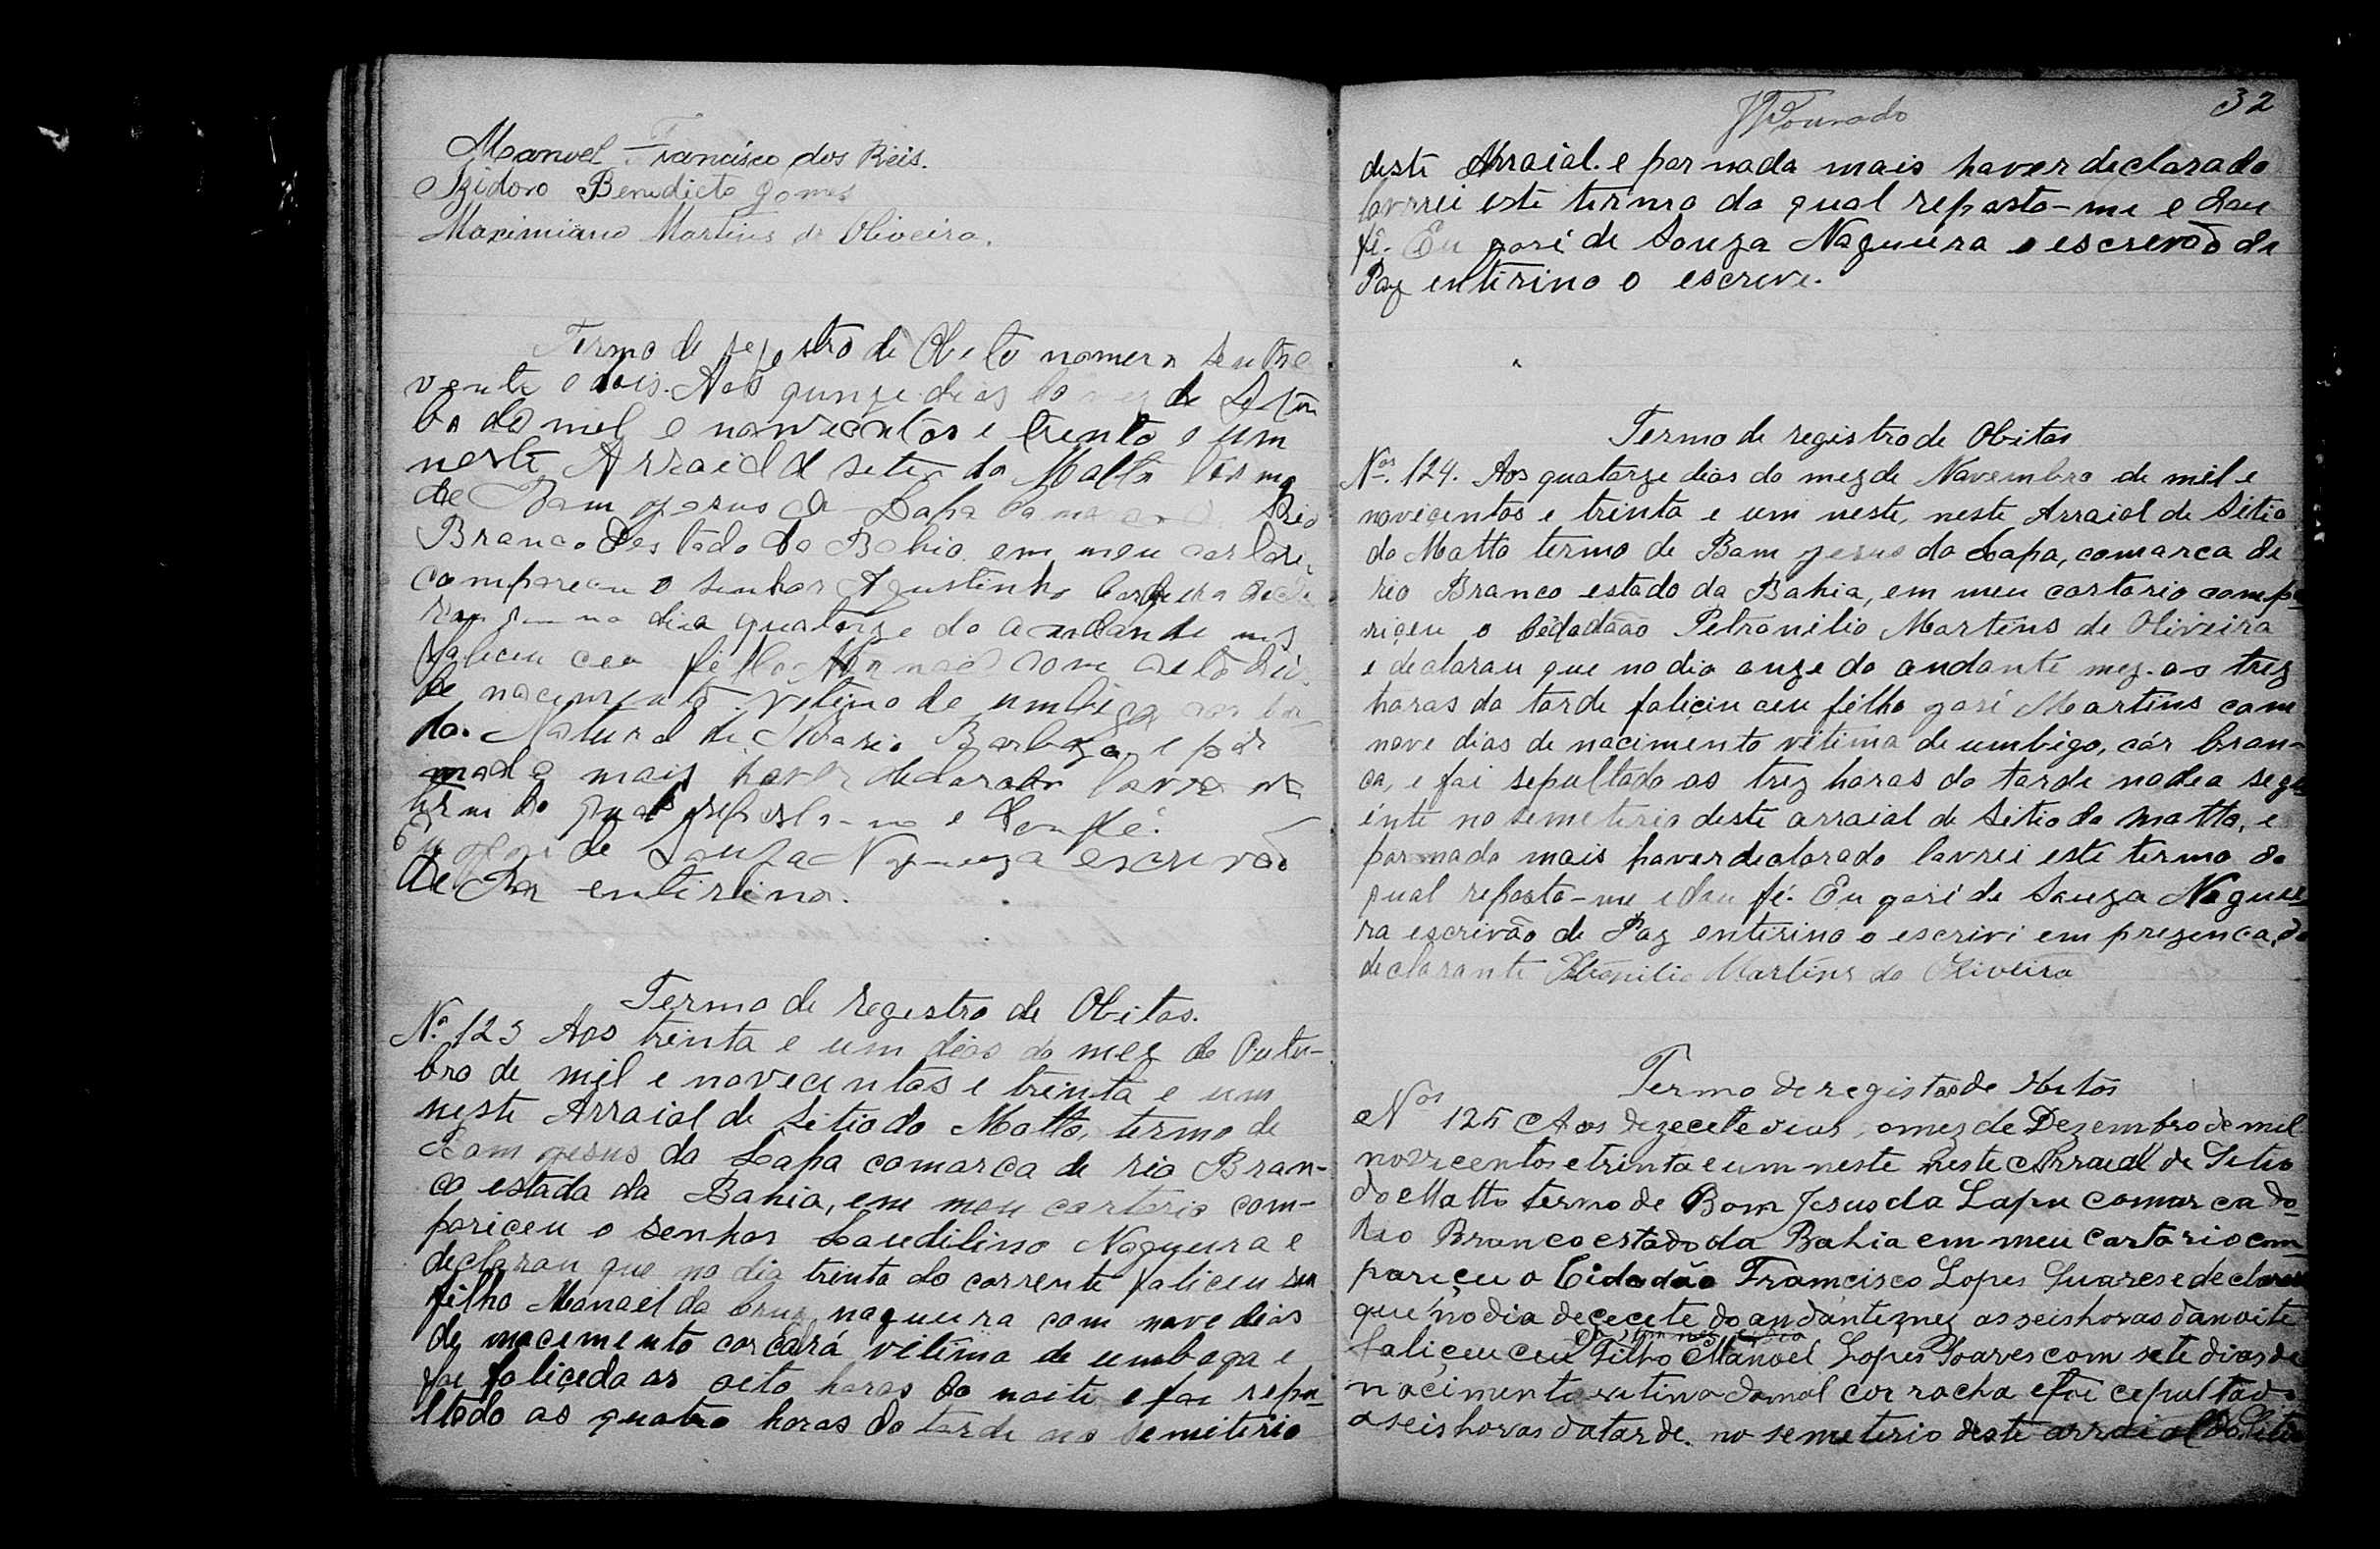 Manoel Francisco dos Reis.
Izidoro Benedicto Gomes
Maximiano Martins de Oliveira.
Termo de registro de Obito nomero
vente e dois. Aos quinze dias do mez de
bo de mil e novecentos e trenta e um
neste Arraial d Setio do Matto termo
de Bom Jesus da Lapa Rio
Branco Estado da Bahia em meu cartori
compareceu o senhor Agustinho
no dia quatorze do andante mez
faliceu ceu filho
de nacimento vitima de umbigo
Natural de Maria Barboza, e por
nada mais haver declarado lavrei
termo do qual reposto-me e dou fé.
de Souza Nogueira escrivão
de Paz entirino.
Termo de registro de Obitos.
Nº 123 Aos trinta e um dias do mez de Outu-
bro de mil e novecentos e trinta e um
neste Arraial de Sitio do Matto, termo de
Bom Jesus da Lapa comarca de rio Bran-
co estado da Bahia, em meu cartorio com-
pariceu o senhor Laudilino Nogueira e
declarou que no dia trinta do corrente faliceu seu
filho Manoel da Cruz nogueira com nove dias
de nacimento cor vitima de umbogo e
foi faliçedo as oito horas da noite e foi sepu-
ltado as quatro horas da tarde no semiterio
32
JDourado
deste Arraial. e por nada mais haver declarado
lavrei este termo do qual reposto-me e dou
fé. Eu José de Souza Nogueira o escrevão de
Paz entirino o escreve.
Termo de registro de Obitos
Nos. 124. Aos quatorze dias do mez de Novembro de mil e
novicentos e trinta e um neste, neste Arraial de Sitio
do Matto termo de Bom Jesus da Lapa, comarca de
rio Branco estado da Bahia, em meu cartorio compa-
riçeu o Cidadão Petronilio Martins de Oliveira
e declarou que no dia onze do andante mez. as trez
horas da tarde faliçeu ceu filho José Martins com
nove dias de nacimento vitima de umbigo, côr bran-
ca, e foi sepultado as trez horas da tarde no dia segu-
inte no semeterio deste arraial de Sitio do Matto, e
por nada mais haver declarado lavrei este termo do
qual reposto-me e dou fé. Eu José de Souza Noguei-
ra escrivão de Paz enterino o escrivi em prezenca do
declarante Petronilio Martins de Oliveira
Termo de registro de Obitos
Nos 125 Aos dezecete dias omez de Dezembro de mil
novecentos e trinta e um neste neste Arraial de Sitio
do Matto termo de Bom Jesus da Lapa comarca do
Rio Branco estado da Bahia em meu Cartorio com-
pariçeu o Cidadão Francisco Lopes Suares e declarou
que no dia dececete do andante mez as seis horas da noite
faliçeu ceu Filho Manoel Lopes Soares com sete dias de
nacimento vitima do mal cor rocha e foi cepultado
a seis horas da tarde. no semeterio deste arraial do Sitio